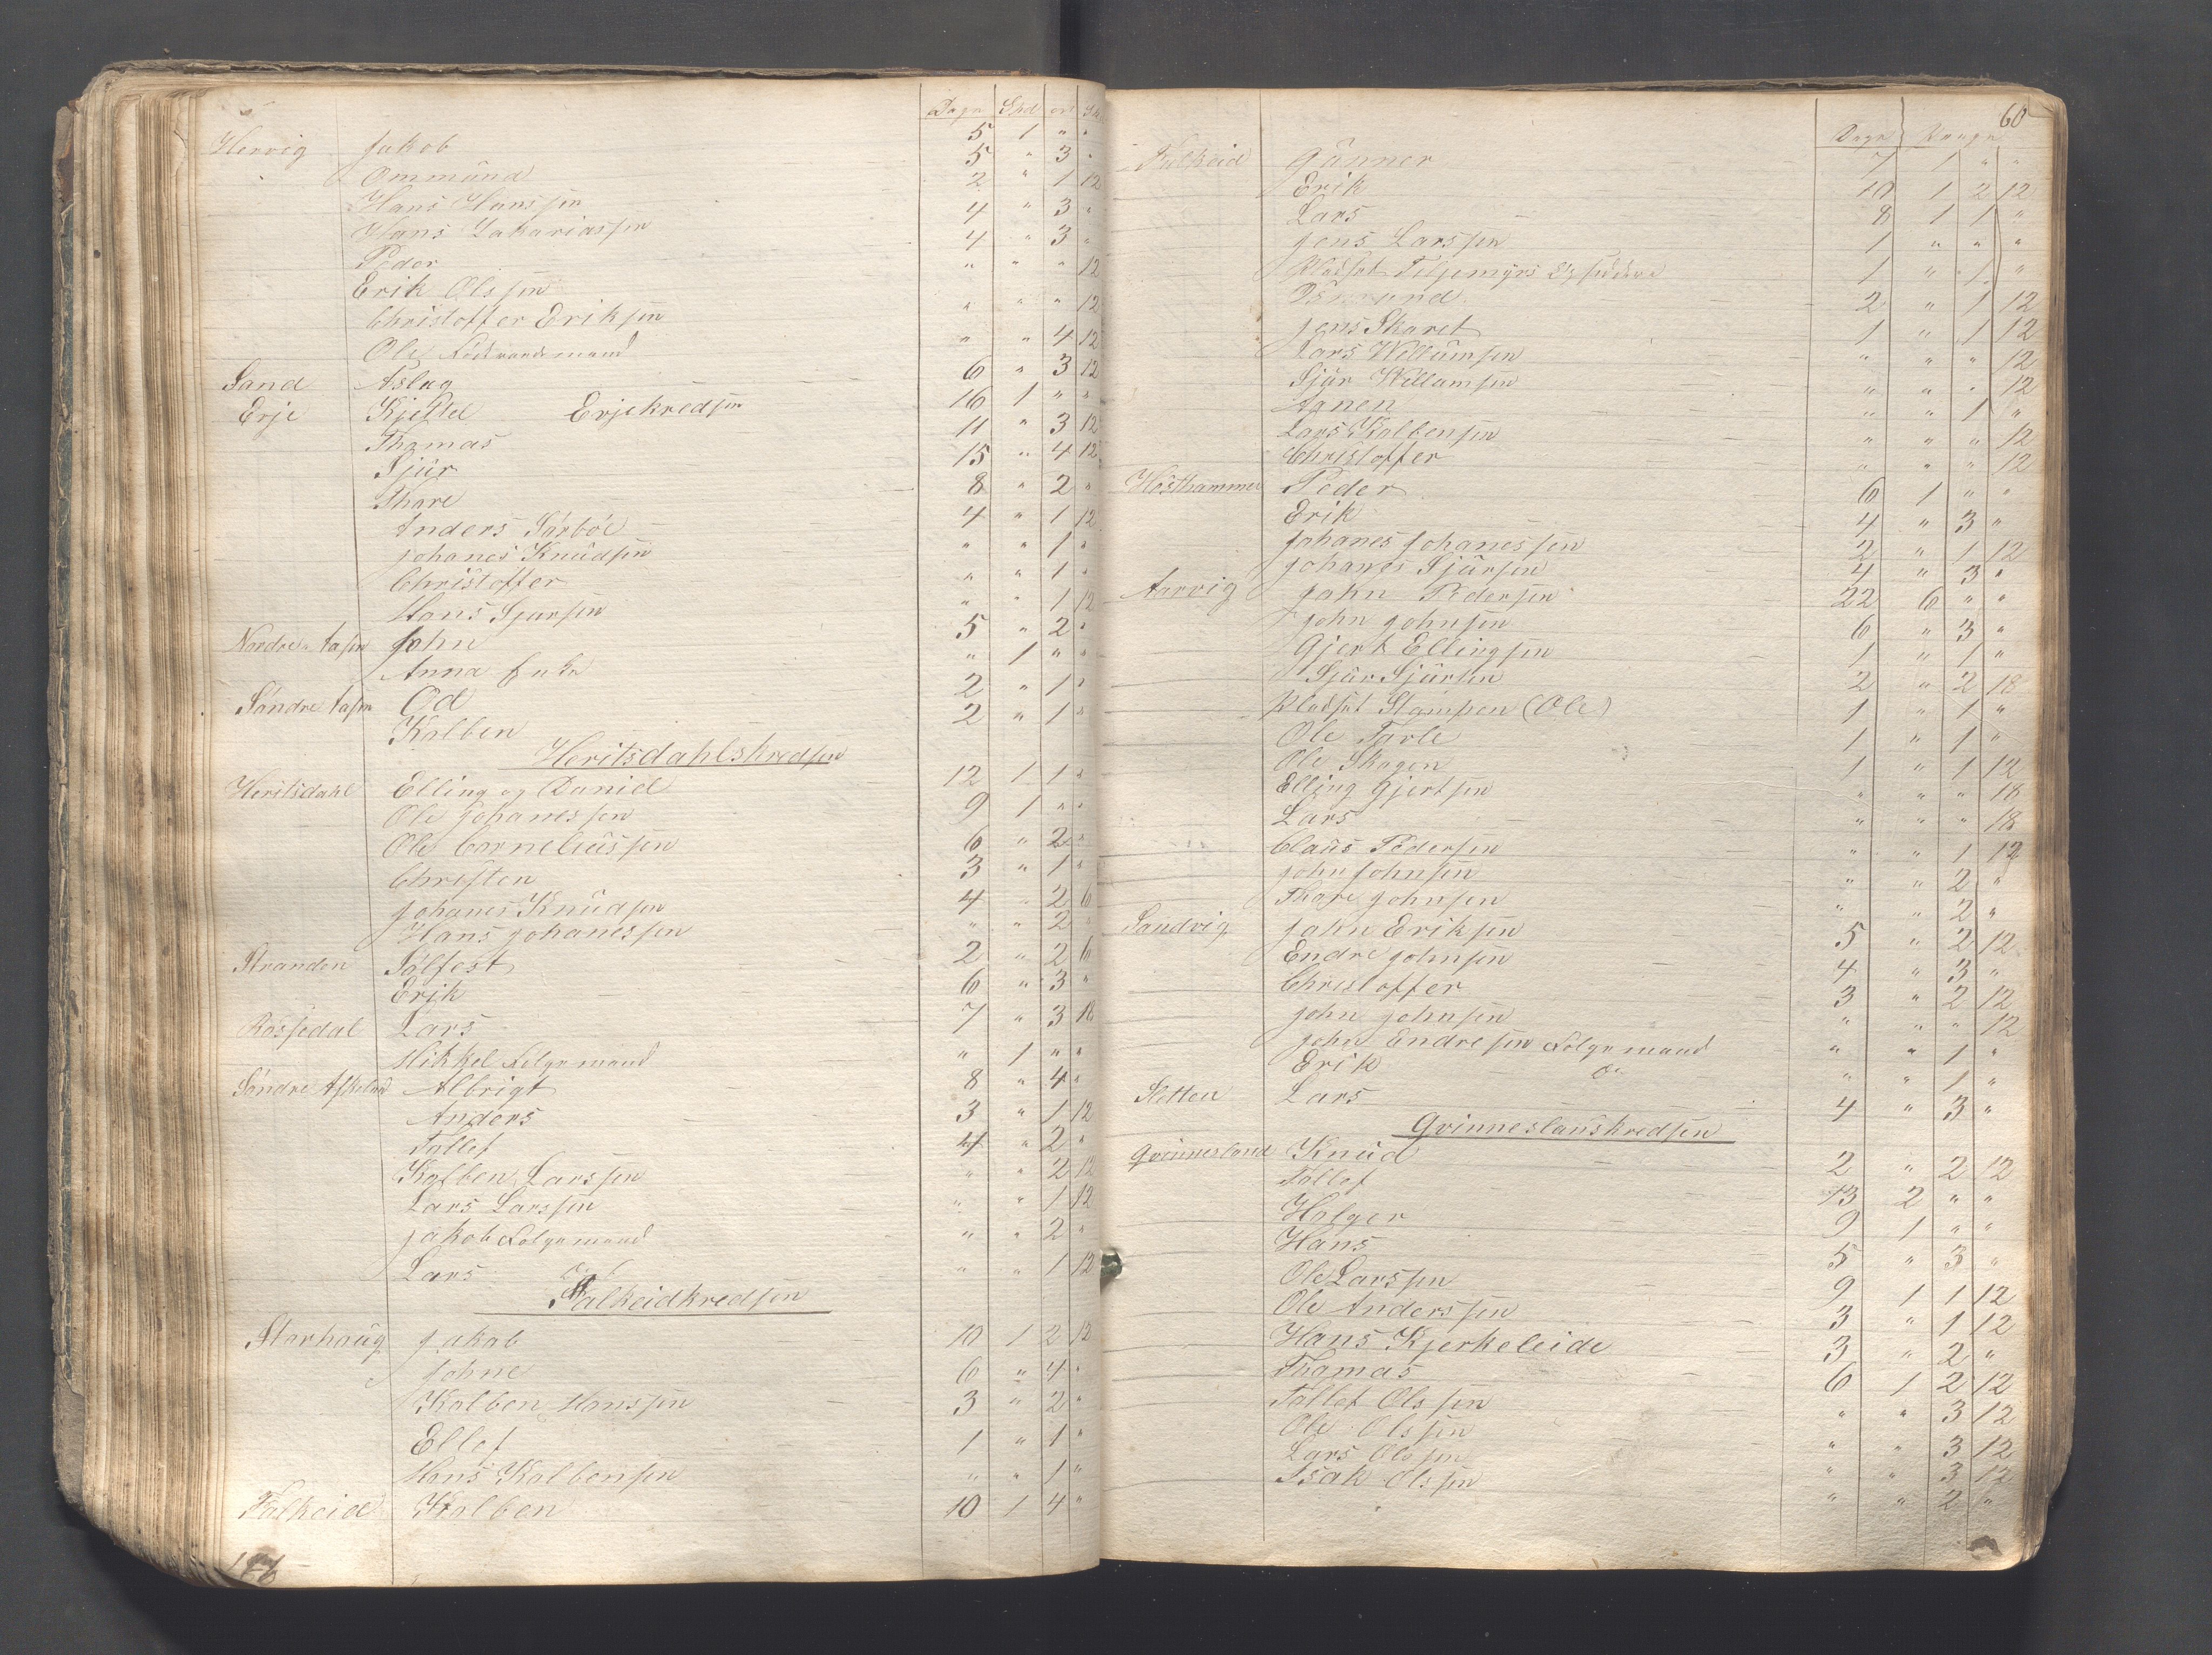 Dage Spd ort Sk
Hervig Jakob 5 1 " "
Ommünd 5 " 3 "
Hans Hanssen 2 " 1 12
Hans Zakariassen 4 " 3 "
Peder 4 " 3 "
Erik Olssen " " " 12
Christoffer Eriksen " " " 12
Ole " " 4 12
Sand Aslag 6 " 3 12
Erje Kjettel Erjekredsen 16 1 " "
Thomas 11 " 3 12
Sjür 15 " 4 12
Thore 8 " 2 "
Anders Sørbøe 4 " 1 12
Johanes Knüdsen " " 1 "
Christoffer " " 1 "
Hans Sjursen " " 1 12
Nordre John 5 " 2 "
Anna Enke " 1 " "
Søndre Od 2 " 1 "
Kolben 2 " 1 "
Heritsdahlskredsen
Heritsdahl Elling og Daniel 12 1 1 "
Ole Johanessen 9 1 " "
Ole Corneliüssen 6 " 2 "
Christen 3 " 1 "
Johanes Knüdsen 4 " 2 6
Hans Johanessen " " 2 "
Stranden Sølfest 2 " 2 6
Erik 6 " 3 "
Røssedal Lars 7 " 3 18
Mikkel Folgemand " 1 " "
Søndre Askeland Albrigt 8 " 4 "
Anders 3 " 1 12
Tollef 4 " 2 "
Kolben Larssen " " 2 12
Lars Larssen " " 1 12
Jakob Folgemand " " 2 "
Lars " " 1 12
Falkeidkredsen
Storhoüg Jakob 10 1 2 12
Johne 6 " 4 "
Kolben Hanssen 3 " 2 "
Ellef 1 " 1 "
Hans Kolbensen " " 1 "
Falkeid Kolben 10 1 4 "
186
60
Dage Penge
Falkeid Günner 7 1 " "
Erik 10 1 2 12
Lars 8 1 1 "
Jens Larssen 1 " " "
Pladset Tiljemyrs 1 " 1 "
Osmund 2 " 1 12
Jens Skaret 1 " 1 12
Lars Willümsen " " " 12
Sjür Willumsen " " " 12
Agnen " " 1 "
Lars Kolbensen " " " 12
Christoffer " " " 12
Høsthammer Peder 6 1 " "
Erik 4 " 3 "
Johanes Johanessen 2 " 1 12
Johanes Sjürsen 4 " 3 "
Aarvig John Pedersen 22 6 " "
John Johnsen 6 " 3 "
Gjert Ellingsen 1 " 1 "
Sjür Sjürsen 2 " 2 18
Pladset Stampen (Ole) 1 " 1 "
Ole Tarle 1 " 1 "
Ole Skogen 1 " 1 12
Elling Gjertsen " " " 18
Lars " " " 18
Claüs Pedersen " " 1 12
John Johnsen " " 2 "
Thore Johnsen " " 2 "
Sandvig John Eriksen 5 " 2 12
Endre Johnsen 4 " 3 "
Christoffer 3 " 2 12
John Johnsen " " " 12
John Endresen Folgemand " " 1 "
Erik " " 1 "
Sletten Lars 4 " 3 "
Qvinneslanskredsen
Qvinnesland Knüd 2 " 2 12
Tollef 13 2 " "
Holger 9 1 " "
Hans 5 " 3 "
Ole Larssen 9 1 1 12
Ole Anderssen 3 " 1 12
Hans Kjerkeleide 3 " 2 "
Thomas 6 1 2 12
Tollef Olssen " " 3 12
Ole Olssen " " 3 12
Lars Olssen " " 3 12
Isak Olssen " " 2 "